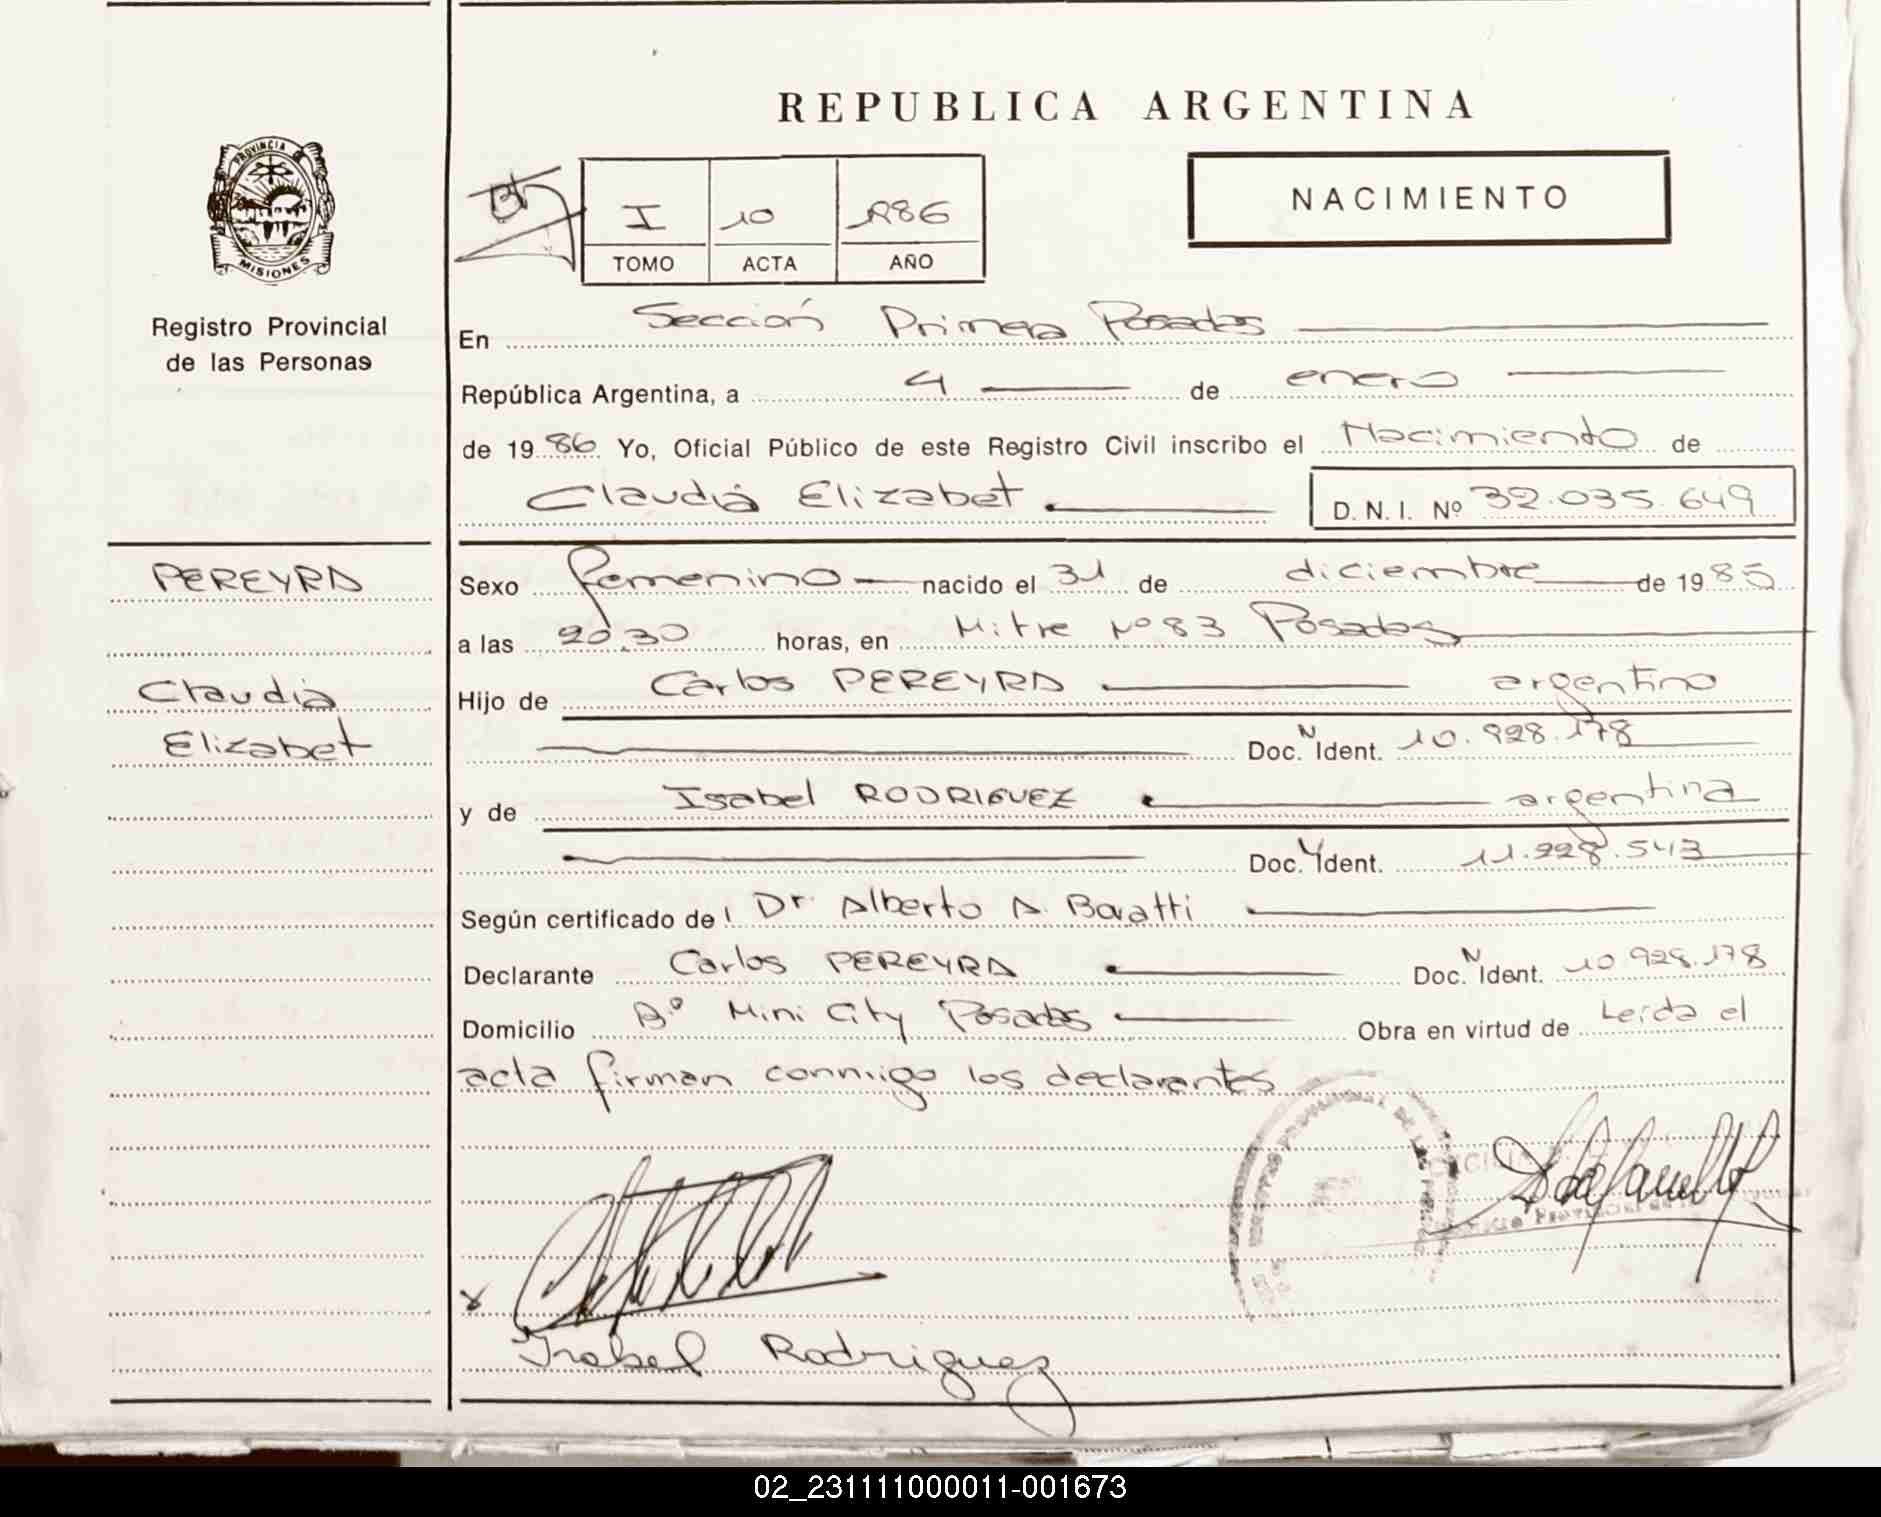 REPUBLICA ARGENTINA
PROVINCIA DE
MISIONES
Registro Provincial
de las Personas
I 10 1986
TOMO ACTA AÑO
NACIMIENTO
En Sección Primera Posadas
República Argentina, a 4 de enero
de 1986 Yo, Oficial Público de este Registro Civil inscribo el Nacimiento de
Claudia Elizabet D. N. I. Nº 32.035.649
PEREYRA
Claudia
Elizabet
Sexo femenino nacido el 31 de diciembre de 1985
a las 20,30 horas, en Mitre Nº 83 Posadas
Hijo de Carlos PEREYRA argentino
Doc. N Ident. 10.928.178
y de Isabel RODRIGUEZ argentina
Doc. Ident. 11.228.543
Según certificado de Dr. Alberto A. Boratti
Declarante Carlos PEREYRA Doc. N Ident. 10 928.178
Domicilio Bº Mini City Posadas Obra en virtud de Leída el
acta firman conmigo los declarantes
Isabel Rodriguez
02_231111000011-001673